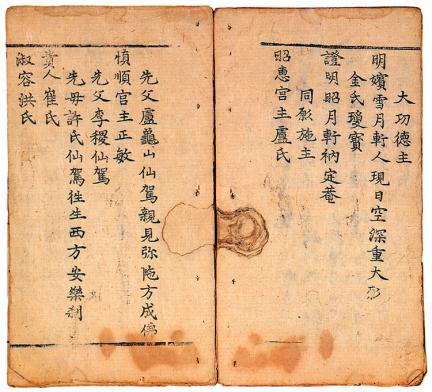 大功德主
明嬪雪月軒人現日空深重大願
金氏瓊寶
證明昭月軒衲定菴
同願施主
昭惠宮主盧氏
先父盧龜山仙駕親見弥陁方成佛
慎順宮主正敏
先父李稷仙駕
先母許氏仙駕徃生西方安樂刹
貴人崔氏
淑容洪氏